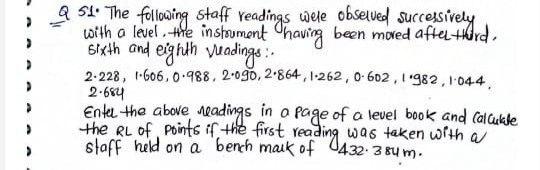 Q 51. The following staff readings were observed successively
with a level. the instrument having been moved after third,
sixth and eighth readings:.
2.228, 1.606, 0.988, 2.090, 2.864, 1.262, 0.602, 1.982, 1.044,
2.684
Enter the above readings in a page of a level book and Calculate
the RL of Points if the first reading was taken with a
staff held on a bench mark of 432.384m.